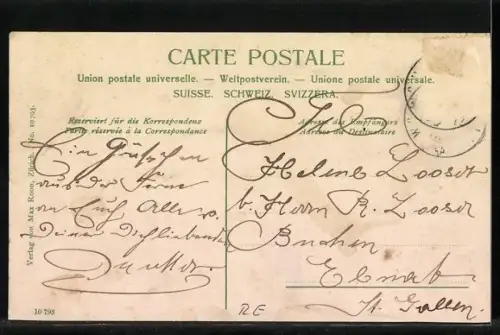 CARTE POSTALE
Union postale universelle. — Weltpostverein. — Unione postale universale.
SUISSE. SCHWEIZ. SVIZZERA.
Reserviert für die Korrespondenz
Partie réservée à la Correspondance
Adresse des Empfängers
Adresse du Destinataire
Ein Grüsschen
aus der Ferne
an Euch Alle v.
Deiner Dichliebenden
Helene Looser
b. Herrn R. Looser
Buchen
Ebnat
St. Gallen
Verlag von Max Roon, Zürich. No. 10793.
10 793
RE